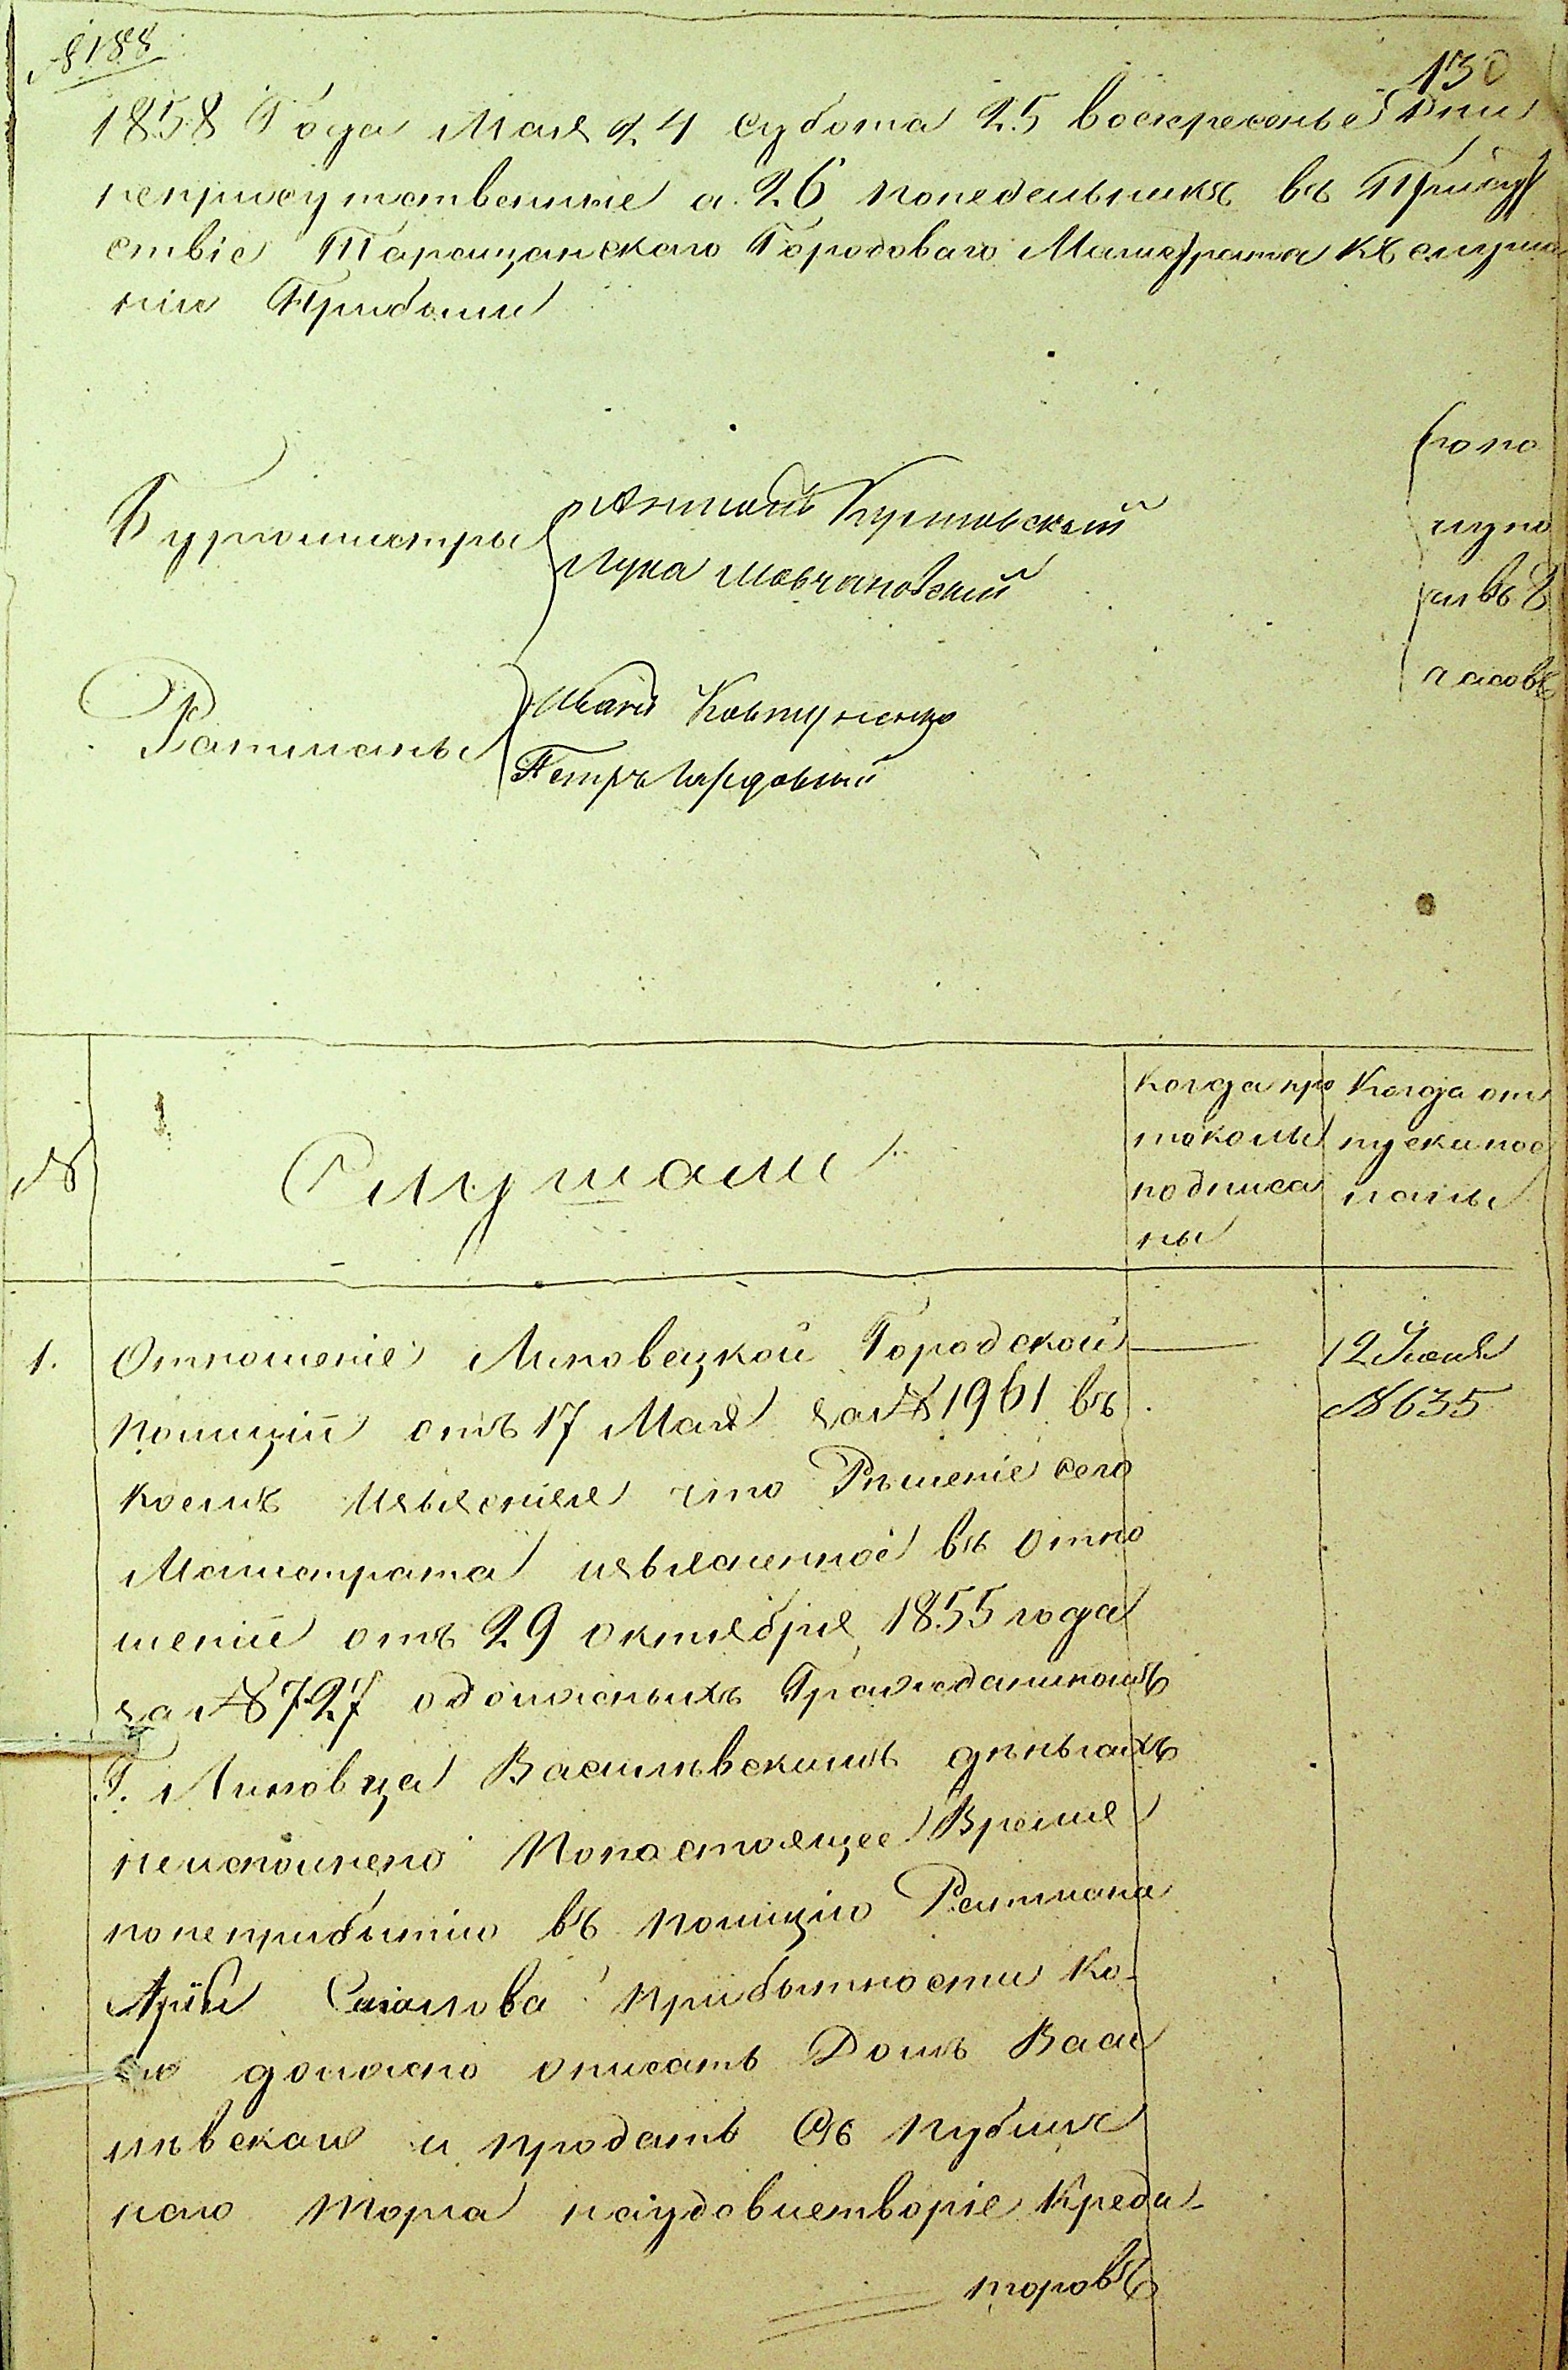 № 188
130
1858 Года Мая 24 субота 25 воскресенье Дни
неприсутственные а 26 понедельникъ въ Присут
ствіе Таращанскаго Городоваго Магистрата къ слуша
нію Прибыли
Бургомистры
Антонъ
Лука Мовчановскій
Ратманы
Иванъ Ковтуненко
Петръ
по по
луно
чи въ 8
часовъ
№
Слушали
Когда про
токолы
подписа
ны
Когда от
пуски пос
ланы
1.
Отношеніе Липовецкой Городской
12 Іюня
Полиціи отъ 17 Мая за № 1961 въ
№ 635
коемъ изъясняя что Рѣшеніе сего
Магистрата изъясненное въ отно
шеніи отъ 29 октября 1855 года
за № 727 о должныхъ Гражданиномъ
Г. Липовца Василѣвскимъ дѣньгахъ
неисполнено Понастоящее Время
понеприбытію въ полицію Ратмана
прибытности Ко-
го должно описать Домъ Васи
лѣвскаго и продать Съ публич
наго торга наудовлетворіе Креди-
торовъ